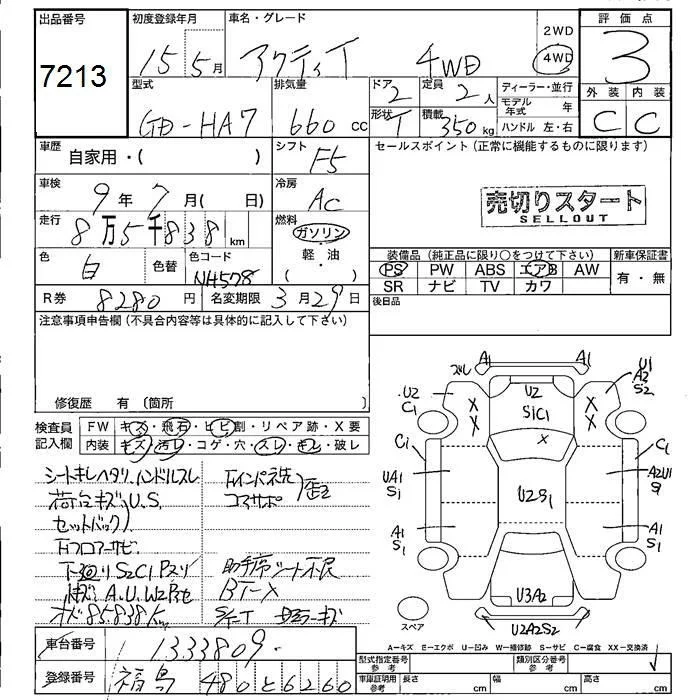 出品番号 初度登録年月 車名・グレード 2WD 評価点
7213 15年5月 アクティ 4WD 4WD 3
型式 排気量 ドア 2 定員 2人 ディーラー・並行 外装 内装
GD-HA7 660cc 形状 T 積載 350kg モデル年式 年 C C
ハンドル 左・右
車歴 自家用・( ) シフト F5 セールスポイント(正常に機能するものに限ります)
車検 9年7月( 日) 冷房 AC 売切りスタート
SELLOUT
走行 8万5千838km 燃料 ガソリン
軽・油
( )
色 白 色替 色コード NH578 装備品(純正品に限り○をつけて下さい) 新車保証書
PS PW ABS エアB AW 有・無
SR ナビ TV カワ
R券 8280円 名変期限 3月29日 後日品
注意事項申告欄(不具合内容等は具体的に記入して下さい)
修復歴 有 〔箇所
検査員 FW キズ・飛石・ヒビ割・リペア跡・X要
記入欄 内装 キズ・汚レ・コゲ・穴・スレ・キレ・破レ
シートキレヘタリ ハンドルスレ
荷台キズU.S
セットバック
下フロアーサビ
下廻りS2C1
A.U.W2
85.838Km
下インパネ穴
コアサポ 歪
助手席シート不良
BT-X
A1 A1
ズレ U1
A2
S2
U2
C1
U2
S1C1
X
X
X
X
X
C1 C1
UA1
S1
A2U1
S1
U2S1
A1
S1
A1
S1
U3A2
スペア U2A2S2
A-キズ E-エクボ U-凹み W-補修跡 S-サビ C-腐食 XX-交換済
車台番号 1333809 型式指定番号 参考 類別区分番号 参考
登録番号 福島 480 と 6260 車庫証明用 参考 長さ cm 幅 cm 高さ cm